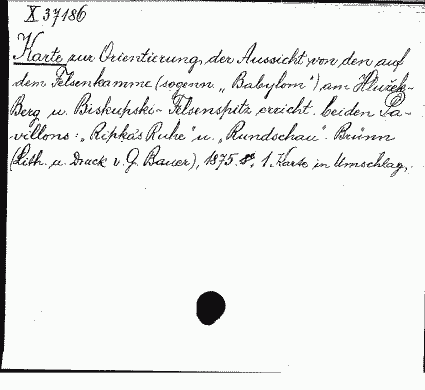 X 37186
Karte zur Orientierung der Aussicht von den auf
dem Felsenkamme (sogenn. „Babylom") am Hluzek-
Berg u. Biskupski-Felsenspitz erricht. beiden Pa-
villons: „Ripka's Ruhe" u. „Rundschau". Brünn
(Lith. u. Druck v. G. Bauer), 1875. 8°. 1 Karte in Umschlag.